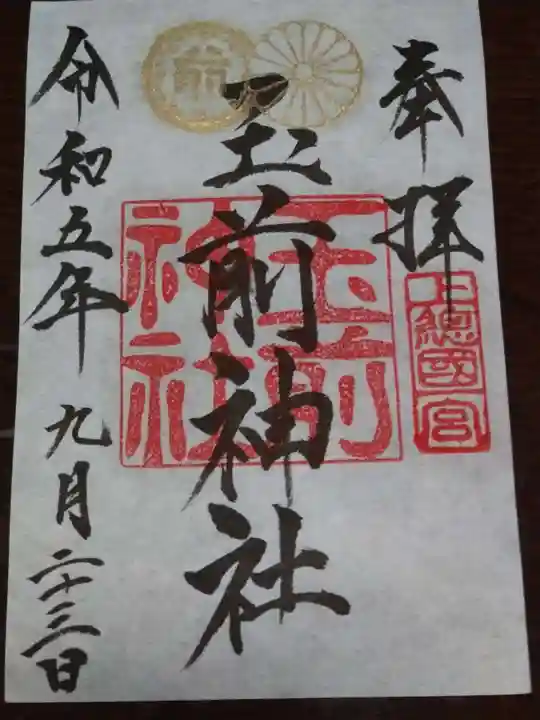 奉拝
上總國一宮
玉前神社
玉前
神社
前
令和五年 九月二十三日